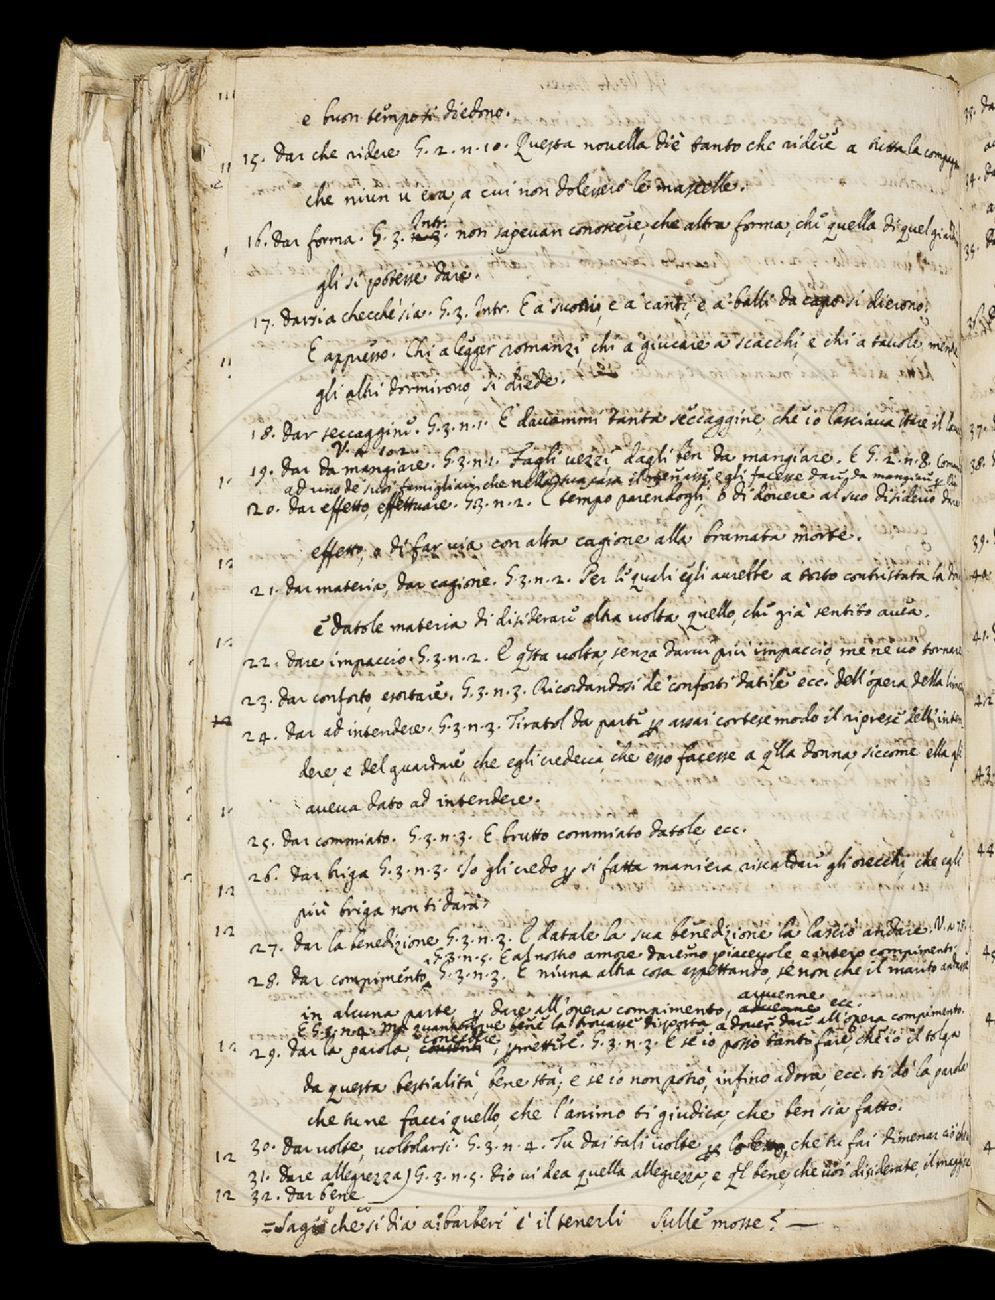 e buon tempo si diedono.
15. dar che ridere G. 2. n. 10. Questa novella diè tanto che ridere a tutta la compagn
che niun v era, a cui non dolessero le mascelle.
Intr.
16. dar forma. G. 3. non sapevan conoscere, che altra forma, che quella di quel giardi
gli si potesse dare.
17. darsi a checchè sia. G. 3. Intr. E a suoni, e a canti, e a balli da capo si dierono.
E appresso. Chi a legger romanzi chi a giucare a scacchi, e chi a tavole, mentre
gli altri dormirono, si diede.
18. dar seccaggine. G. 3. n. 1. E davanmi tanta seccaggine, che io lasciava stare il lavo
V. n. 102
19. dar da mangiare. G. 3. n. 1. Fagli vezzi, dagli ben da mangiare. E G. 2. n. 8. Coman
ad uno de suoi famigliari, che nella sua casa il facesse dar da mangiare p
20. dar effetto, effettuare. G. 3. n. 2. E tempo parendogli, o di dovere al suo disidero dare
effetto, o di far via con alta cagione alla bramata morte.
21. dar materia, dar cagione. G. 3. n. 2. Per li quali egli avrebbe a torto contristata la do
e datole materia di disiderare altra volta quello, che già sentito avea.
22. dare impaccio. G. 3. n. 2. E qsta volta, senza darvi più impaccio, me ne vo tornare
23. dar conforto, esortare. G. 3. n. 3. Ricordandosi de conforti datile ecc. dell'opera della
24. dar ad intendere. G. 3. n. 3. Tiratol da parte p assai cortese modo il riprese dell'inten
dere, e del guardare, che egli credeva, che esso facesse a qlla donna, siccome ella gli
aveva dato ad intendere.
25. dar commiato. G. 3. n. 3. E brutto commiato datole, ecc.
26. dar briga G. 3. n. 3. Io gli credo p si fatta maniera riscaldare gli orecchi, che egli
più briga non ti darà.
27. dar la benedizione G. 3. n. 3. E datale la sua benedizione la lasciò andare. V. n.
G. 3. n. 5. E al nostro amore daremo piacevole, e intero compimento.
28. dar compimento G. 3. n. 3. E niuna altra cosa aspettando, se non che il marito andasse
in alcuna parte p dare all'opera compimento, avvenne ecc.
E G. 3. n. 4. Ma quantunque bene la trovasse disposta a dover dare all'opera compimento.
concedere
29. dar la parola, consenti, pmettere. G. 3. n. 3. E se io posso tanto fare, che io il tolga
da questa bestialità, bene sta; e se io non potrò, infino adora ecc. ti dò la parola
che tu ne facci quello, che l'animo ti giudica, che ben sia fatto.
30. dar volte, voltolarsi. G. 3. n. 4. Tu dai tali volte p lo letto, che tu fai dimenar ciò che
31. dare allegrezza) G. 3. n. 5. dio vi dea quella allegrezza, e ql bene, che voi disiderate, il
32. dar bene
che si dia a' barberi è il tenerli sulle mosse? —